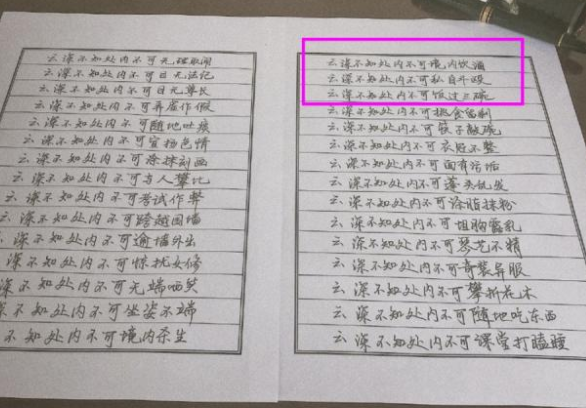 云深不知处内不可无理取闹
云深不知处内不可目无法记
云深不知处内不可目无尊长
云深不知处内不可弄虚作假
云深不知处内不可随地吐痰
云深不知处内不可宣扬色情
云深不知处内不可涂抹刻画
云深不知处内不可与人攀比
云深不知处内不可考试作弊
云深不知处内不可跨越围墙
云深不知处内不可逾墙外出
云深不知处内不可惊扰女修
深不知处内不可无端哂笑
深不知处内不可坐姿不端
不知处内不可境内杀生
云深不知处内不可境内饮酒
云深不知处内不可私自斗殴
云深不知处内不可饭过三碗
云深不知处内不可挑食留剩
云深不知处内不可筷子敲碗
云深不知处内不可衣冠不整
云深不知处内不可面有污垢
云深不知处内不可蓬头乱发
云深不知处内不可涂脂抹粉
云深不知处内不可坦胸露乳
云深不知处内不可琴艺不精
云深不知处内不可奇装异服
云深不知处内不可攀折花木
云深不知处内不可随地吃东西
云深不知处内不可课堂打瞌睡